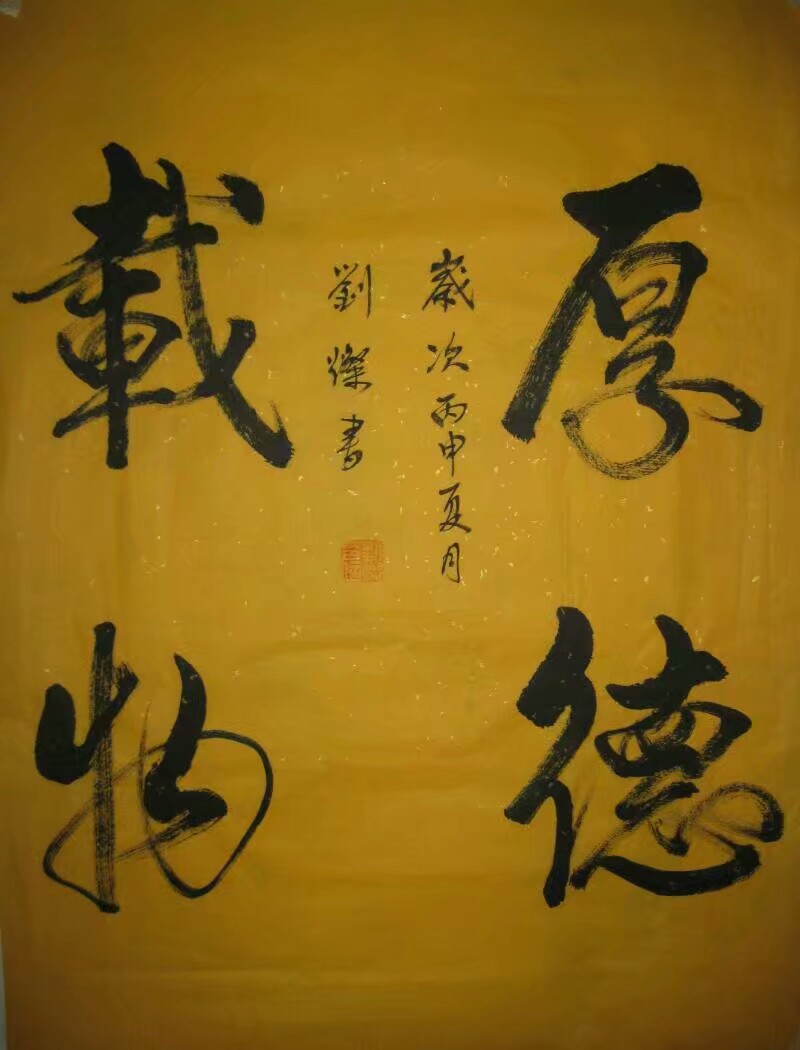 厚德
載物
歲次丙申夏月
劉燦書